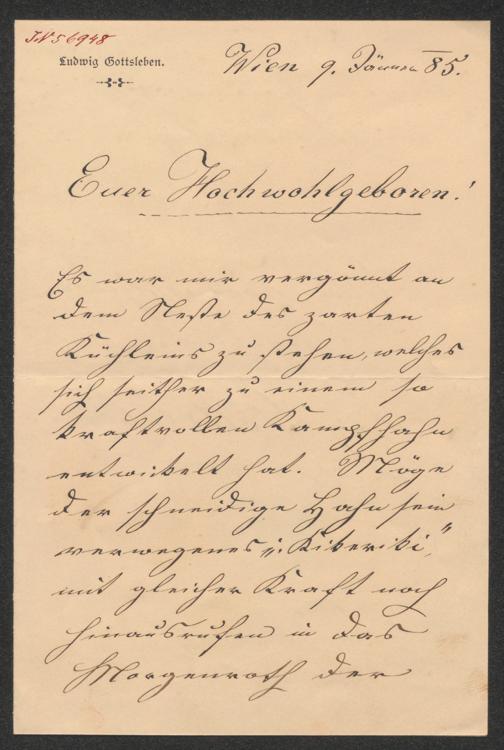 I.N 56948
Ludwig Gottsleben.
Wien 9. Jänner 85.
Euer Hochwohlgeboren!
Es war mir vergönnt an
dem Neste des zarten
Küchleins zu stehen, welches
sich seither zu einem so
kraftvollen Kampfhahn
entwickelt hat. Möge
der schneidige Hahn sein
verwegenes „Kikeriki"
mit gleicher Kraft noch
hinausrufen in das
Morgenroth der